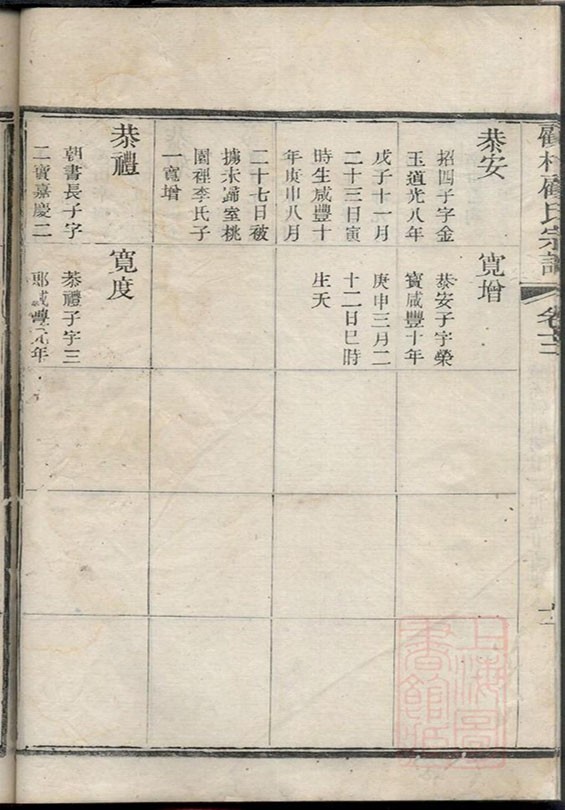 顧氏宗譜
卷十三
恭安
招四子字金
玉道光八年
戊子十一月
二十三日寅
時生咸豐十
年庚申八月
二十七日被
擄未歸室桃
園裡李氏子
一寬增
恭禮
朝書長子字
二寶嘉慶二
寬增
恭安子字榮
寶咸豐十年
庚申三月二
十二日巳時
生夭
寬度
恭禮子字三
郎咸豐元年
上海圖
書館